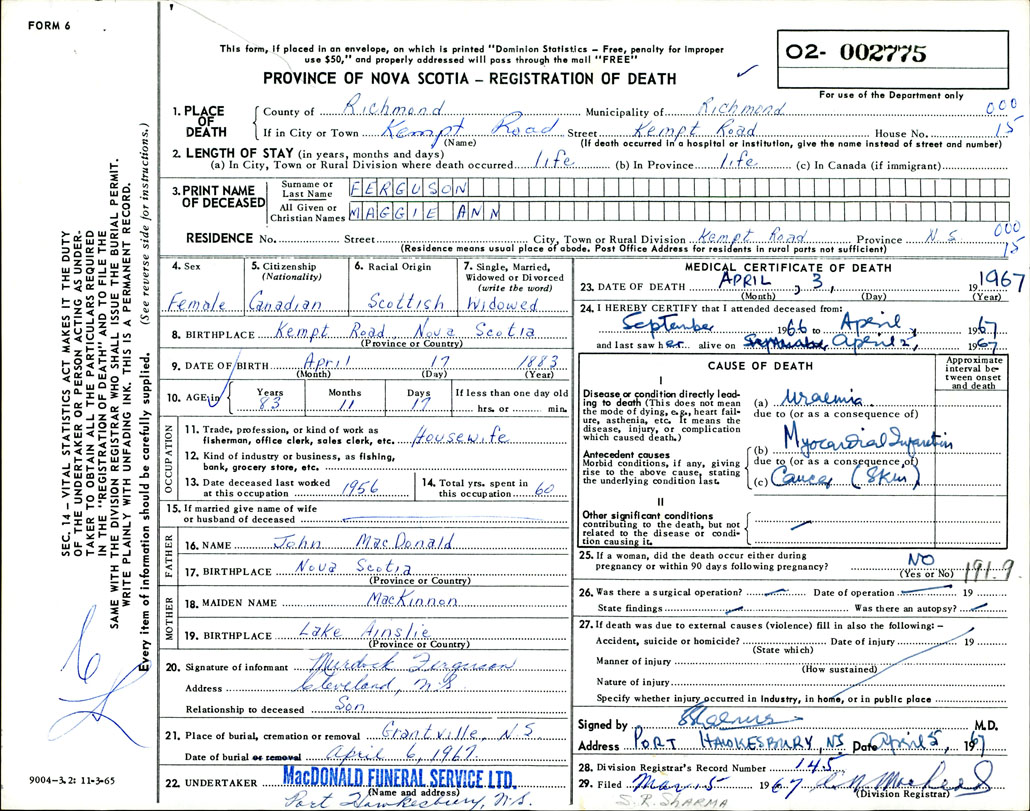 FORM 6
This form, if placed in an envelope, on which is printed "Dominion Statistics – Free, penalty for improper
use $50," and properly addressed will pass through the mail "FREE"
PROVINCE OF NOVA SCOTIA – REGISTRATION OF DEATH
02- 002775
For use of the Department only
SEC. 14 – VITAL STATISTICS ACT MAKES IT THE DUTY
OF THE UNDERTAKER OR PERSON ACTING AS UNDER-
TAKER TO OBTAIN ALL THE PARTICULARS REQUIRED
IN THE "REGISTRATION OF DEATH" AND TO FILE THE
SAME WITH THE DIVISION REGISTRAR WHO SHALL ISSUE THE BURIAL PERMIT.
WRITE PLAINLY WITH UNFADING INK. THIS IS A PERMANENT RECORD.
Every item of information should be carefully supplied. (See reverse side for instructions.)
1. PLACE OF DEATH
County of Richmond Municipality of Richmond 000
If in City or Town Kempt Road Street Kempt Road House No. 15
(Name) (If death occurred in a hospital or institution, give the name instead of street and number)
2. LENGTH OF STAY (in years, months and days)
(a) In City, Town or Rural Division where death occurred life (b) In Province life (c) In Canada (if immigrant)
3. PRINT NAME OF DECEASED
Surname or Last Name FERGUSON
All Given or Christian Names MAGGIE ANN
RESIDENCE No. Street City, Town or Rural Division Kempt Road Province N S 000 15
(Residence means usual place of abode. Post Office Address for residents in rural parts not sufficient)
4. Sex
Female
5. Citizenship (Nationality)
Canadian
6. Racial Origin
Scottish
7. Single, Married, Widowed or Divorced (write the word)
Widowed
8. BIRTHPLACE Kempt Road, Nova Scotia
(Province or Country)
9. DATE OF BIRTH April 17 1883
(Month) (Day) (Year)
10. AGE in Years 83 Months 11 Days 17 If less than one day old
hrs. or min.
OCCUPATION
11. Trade, profession, or kind of work as
fisherman, office clerk, sales clerk, etc. Housewife
12. Kind of industry or business, as fishing,
bank, grocery store, etc.
13. Date deceased last worked at this occupation 1956
14. Total yrs. spent in this occupation 60
15. If married give name of wife
or husband of deceased
FATHER
16. NAME John MacDonald
17. BIRTHPLACE Nova Scotia
(Province or Country)
MOTHER
18. MAIDEN NAME MacKinnon
19. BIRTHPLACE Lake Ainslie
(Province or Country)
20. Signature of informant Murdock Ferguson
Address Cleveland, N.S.
Relationship to deceased Son
21. Place of burial, cremation or removal Grantville, N S.
Date of burial or removal April 6, 1967.
22. UNDERTAKER MacDONALD FUNERAL SERVICE LTD.
(Name and address)
Port Hawkesbury, N.S.
9004-3.2: 11-3-65
MEDICAL CERTIFICATE OF DEATH
23. DATE OF DEATH APRIL, 3, 19 1967
(Month) (Day) (Year)
24. I HEREBY CERTIFY that I attended deceased from:
September 1966 to April, 1967
and last saw her alive on April 2, 1967
CAUSE OF DEATH
Approximate interval between onset and death
I
Disease or condition directly lead-
ing to death (This does not mean
the mode of dying, e.g., heart fail-
ure, asthenia, etc. It means the
disease, injury, or complication
which caused death.)
(a) Uraemia
due to (or as a consequence of
Antecedent causes
Morbid conditions, if any, giving
rise to the above cause, stating
the underlying condition last.
(b) Myocardial Infarction
due to (or as a consequence of)
(c) Cancer (Skin)
II
Other significant conditions
contributing to the death, but not
related to the disease or condi-
tion causing it.
25. If a woman, did the death occur either during
pregnancy or within 90 days following pregnancy? NO
(Yes or No) 191.9
26. Was there a surgical operation? Date of operation 19
State findings Was there an autopsy?
27. If death was due to external causes (violence) fill in also the following: –
Accident, suicide or homicide? Date of injury 19
(State which)
Manner of injury
(How sustained)
Nature of injury
Specify whether injury occurred in Industry, in home, or in public place
Signed by M.D.
Address PORT HAWKESBURY, NS Date April 5, 1967
28. Division Registrar's Record Number 145
29. Filed May 15 1967
(Division Registrar)
S. R. SHARMA